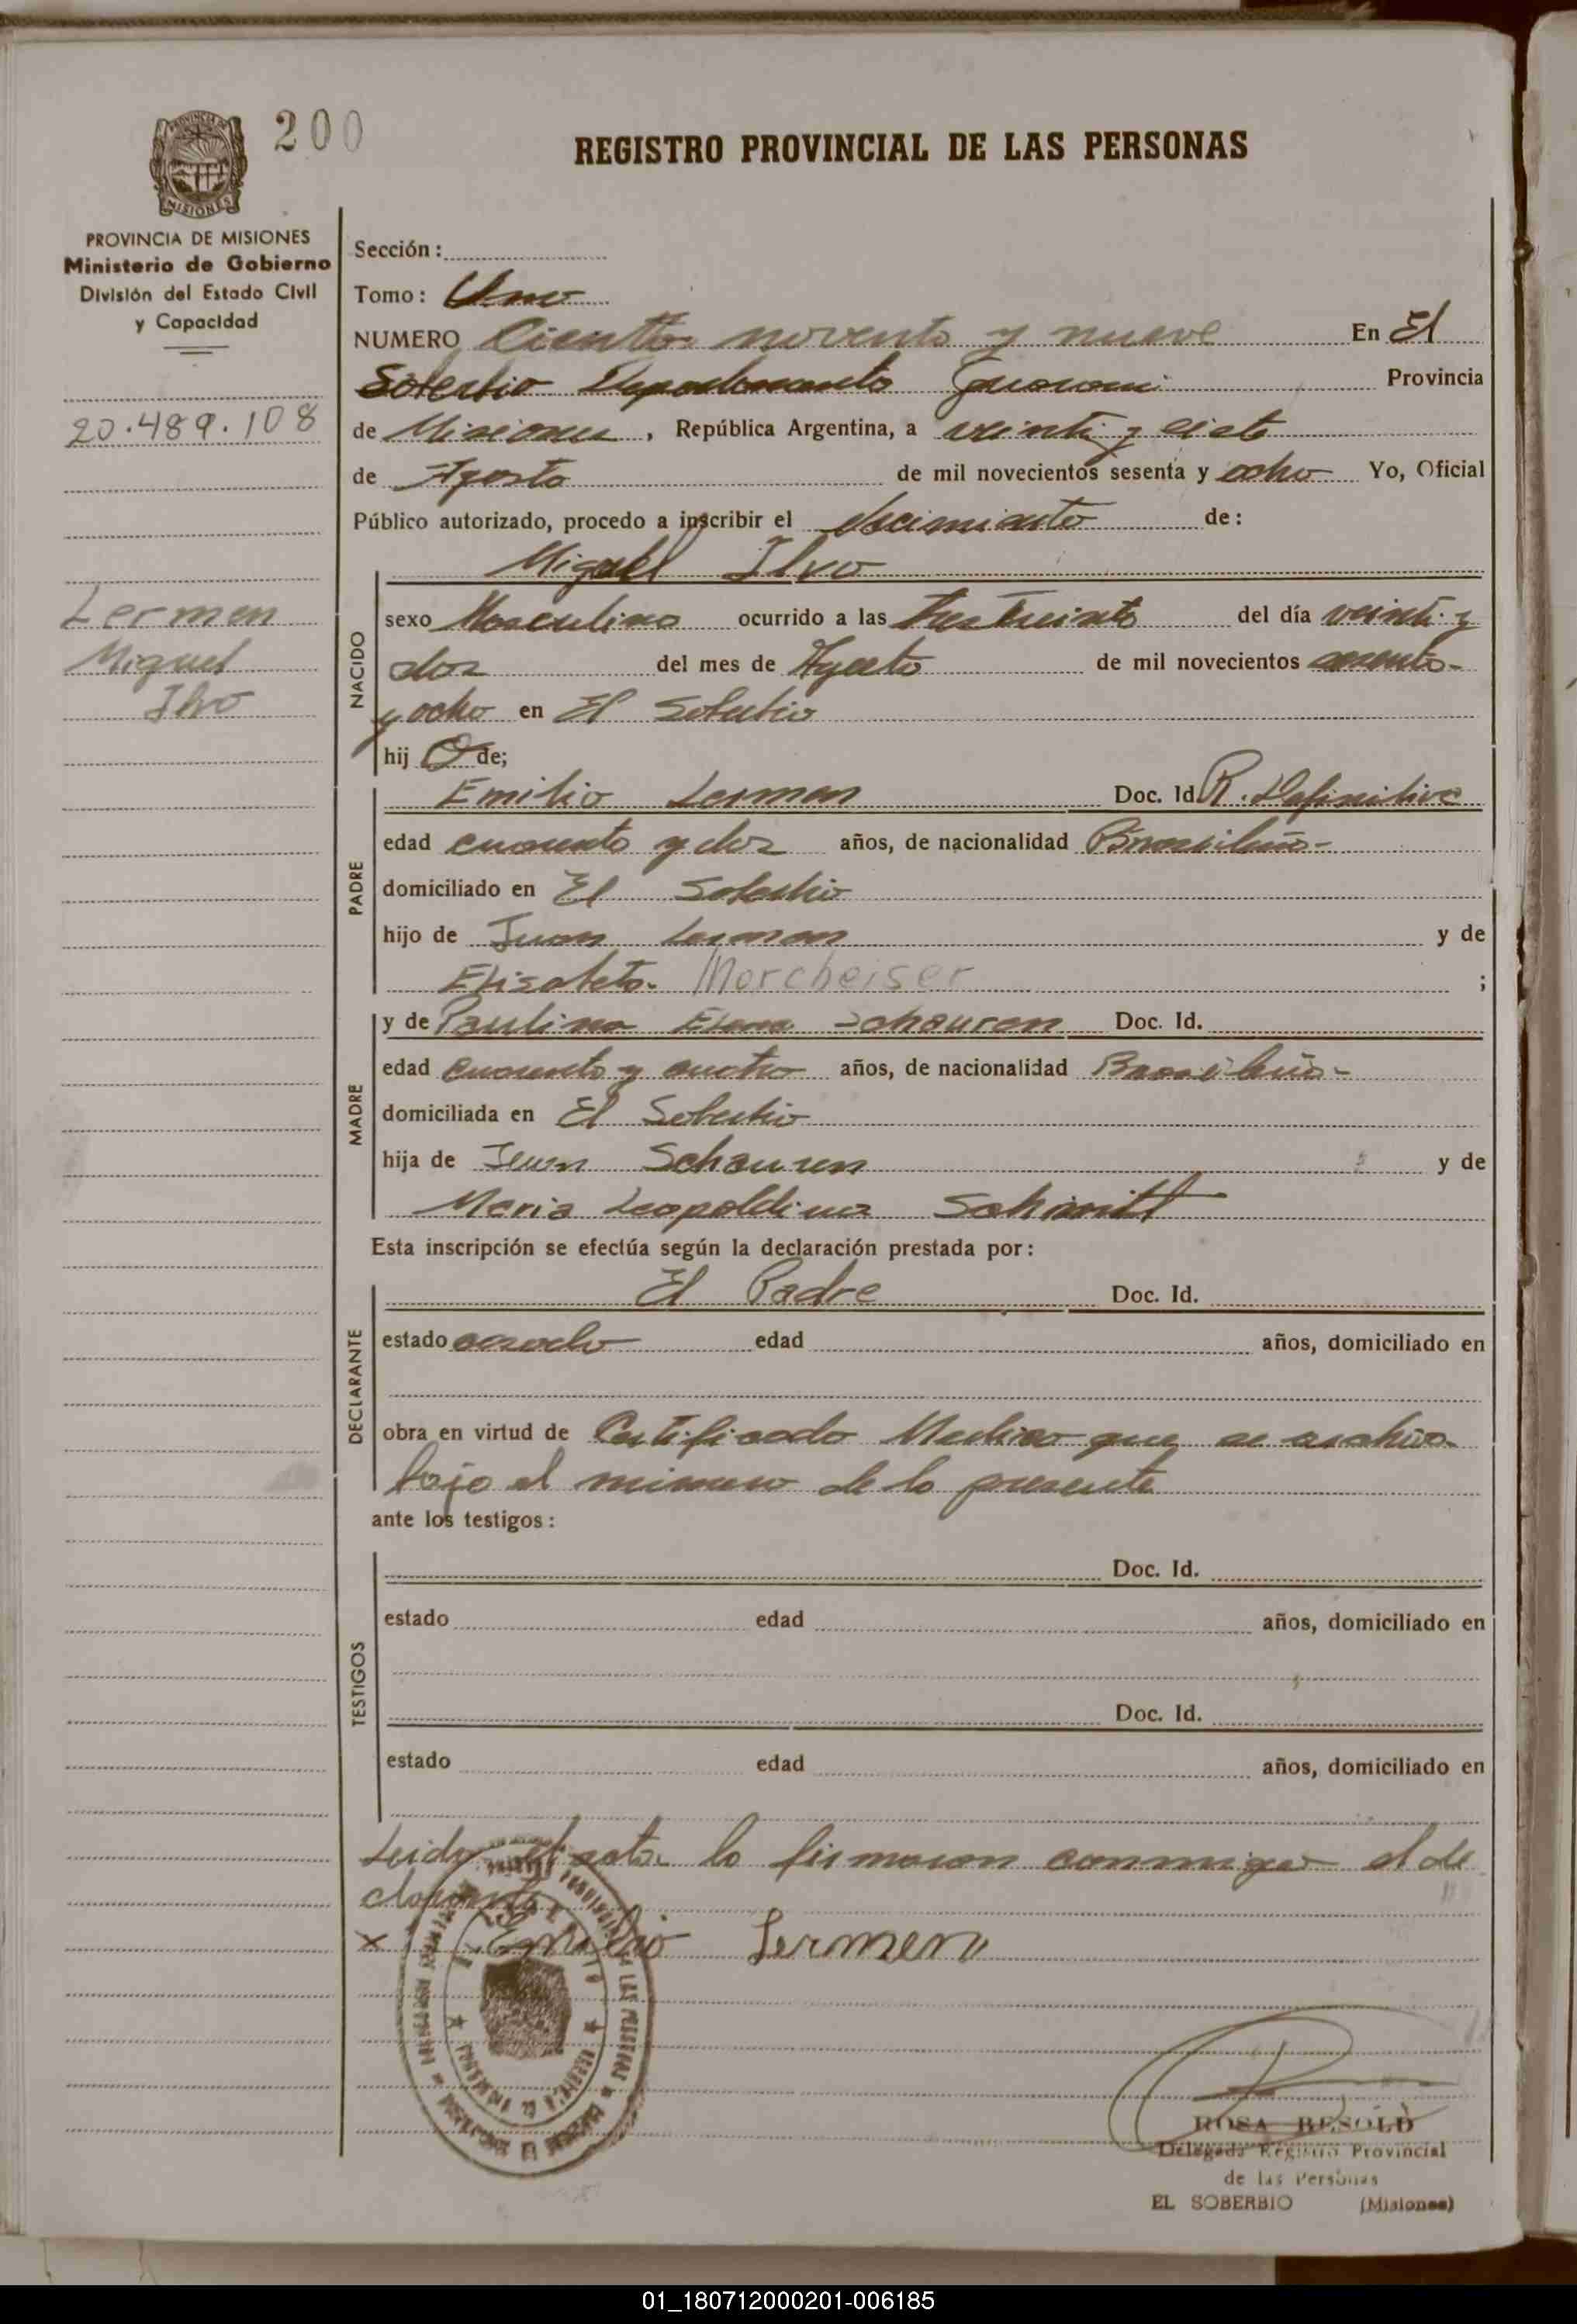 200
REGISTRO PROVINCIAL DE LAS PERSONAS
PROVINCIA DE MISIONES
Ministerio de Gobierno
División del Estado Civil
y Capacidad
20.489.108
Lermen
Miguel
Ilvo
Sección:
Tomo: Uno
NUMERO Ciento noventa y nueve En El
Soberbio Departamento Guarani Provincia
de Misiones, República Argentina, a veinti y siete
de Agosto de mil novecientos sesenta y ocho Yo, Oficial
Público autorizado, procedo a inscribir el Nacimiento de:
Miguel Ilvo
NACIDO
sexo Masculino ocurrido a las tres treinta del día veinti y
dos del mes de Agosto de mil novecientos sesenta
y ocho en El Soberbio
hij o de;
PADRE
Emilio Lermen Doc. Id. R. Definitiva
edad cuarenta y dos años, de nacionalidad Brasileña-
domiciliado en El Soberbio
hijo de Juan Lermen y de
Elisabeta Morcheiser ;
MADRE
y de Paulina Elena Schauren Doc. Id.
edad cuarenta y cuatro años, de nacionalidad Brasileña-
domiciliada en El Soberbio
hija de Juan Schauren y de
Maria Leopoldina Schmitt
Esta inscripción se efectúa según la declaración prestada por:
DECLARANTE
El Padre Doc. Id.
estado casado edad años, domiciliado en
obra en virtud de Certificado Medico que se archiva
bajo el numero de la presente
ante los testigos:
TESTIGOS
Doc. Id.
estado edad años, domiciliado en
Doc. Id.
estado edad años, domiciliado en
Leida el acta la firmaron conmigo el de
clarante
x Emilio Lermen
ROSA RESOLD
Delegada Registro Provincial
de las Personas
EL SOBERBIO (Misiones)
01_180712000201-006185